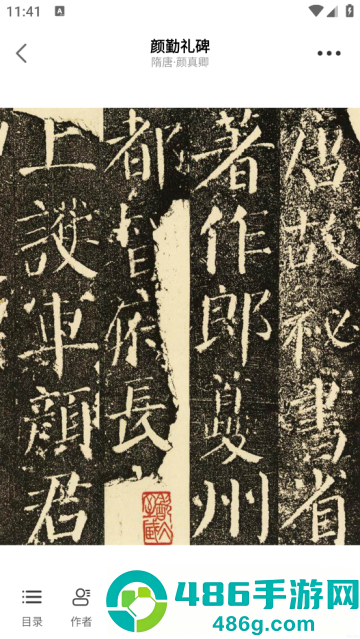 11:41
A
颜勤礼碑
隋唐·颜真卿
唐故祕書省
著作郎夔州
都督府長
上護軍顏君
目录
作者
486手游网
486g.com